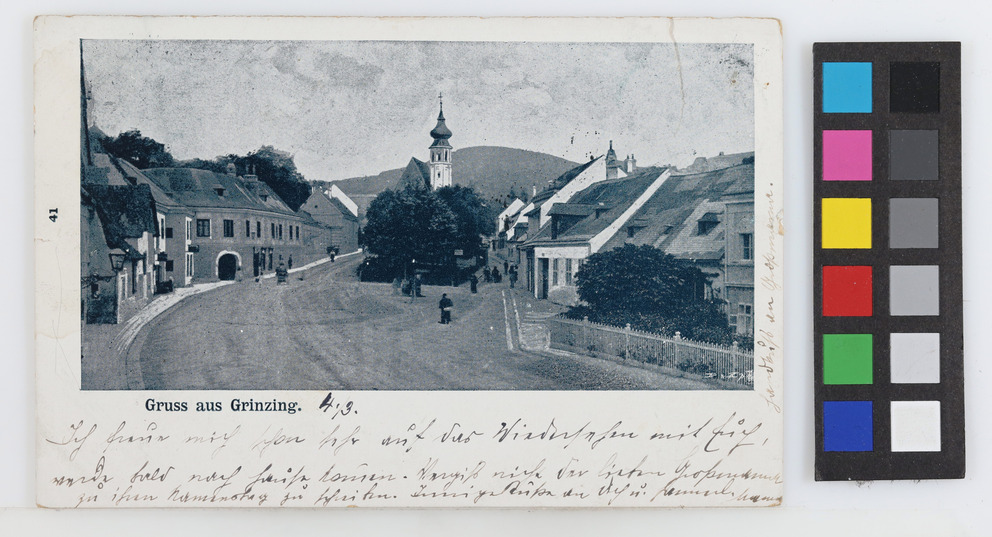 41
Gruss aus Grinzing. 4./3.
Ich freue mich schon sehr auf das Wiedersehen mit Euch,
werde bald nach Hause kommen. Vergiß nicht der lieben Großmama
zu ihrem Namenstag zu schreiben. Innige Küße an Dich u.